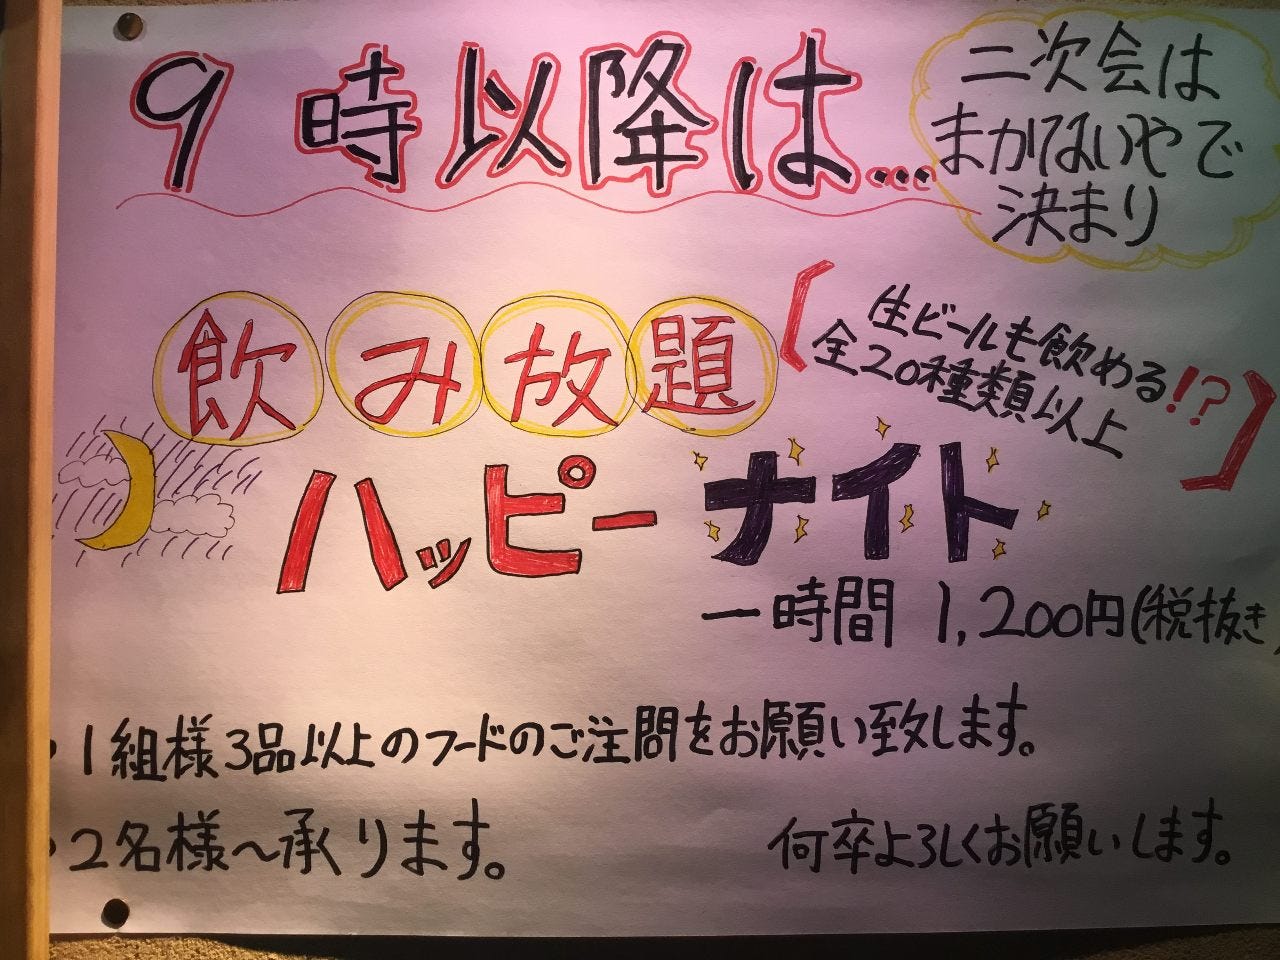 9時以降は...
二次会は
まかないやで
決まり
飲み放題
生ビールも飲める!?
全20種類以上
ハッピーナイト
一時間 1,200円(税抜き)
・1組様3品以上のフードのご注問をお願い致します。
・2名様〜承ります。
何卒よろしくお願いします。